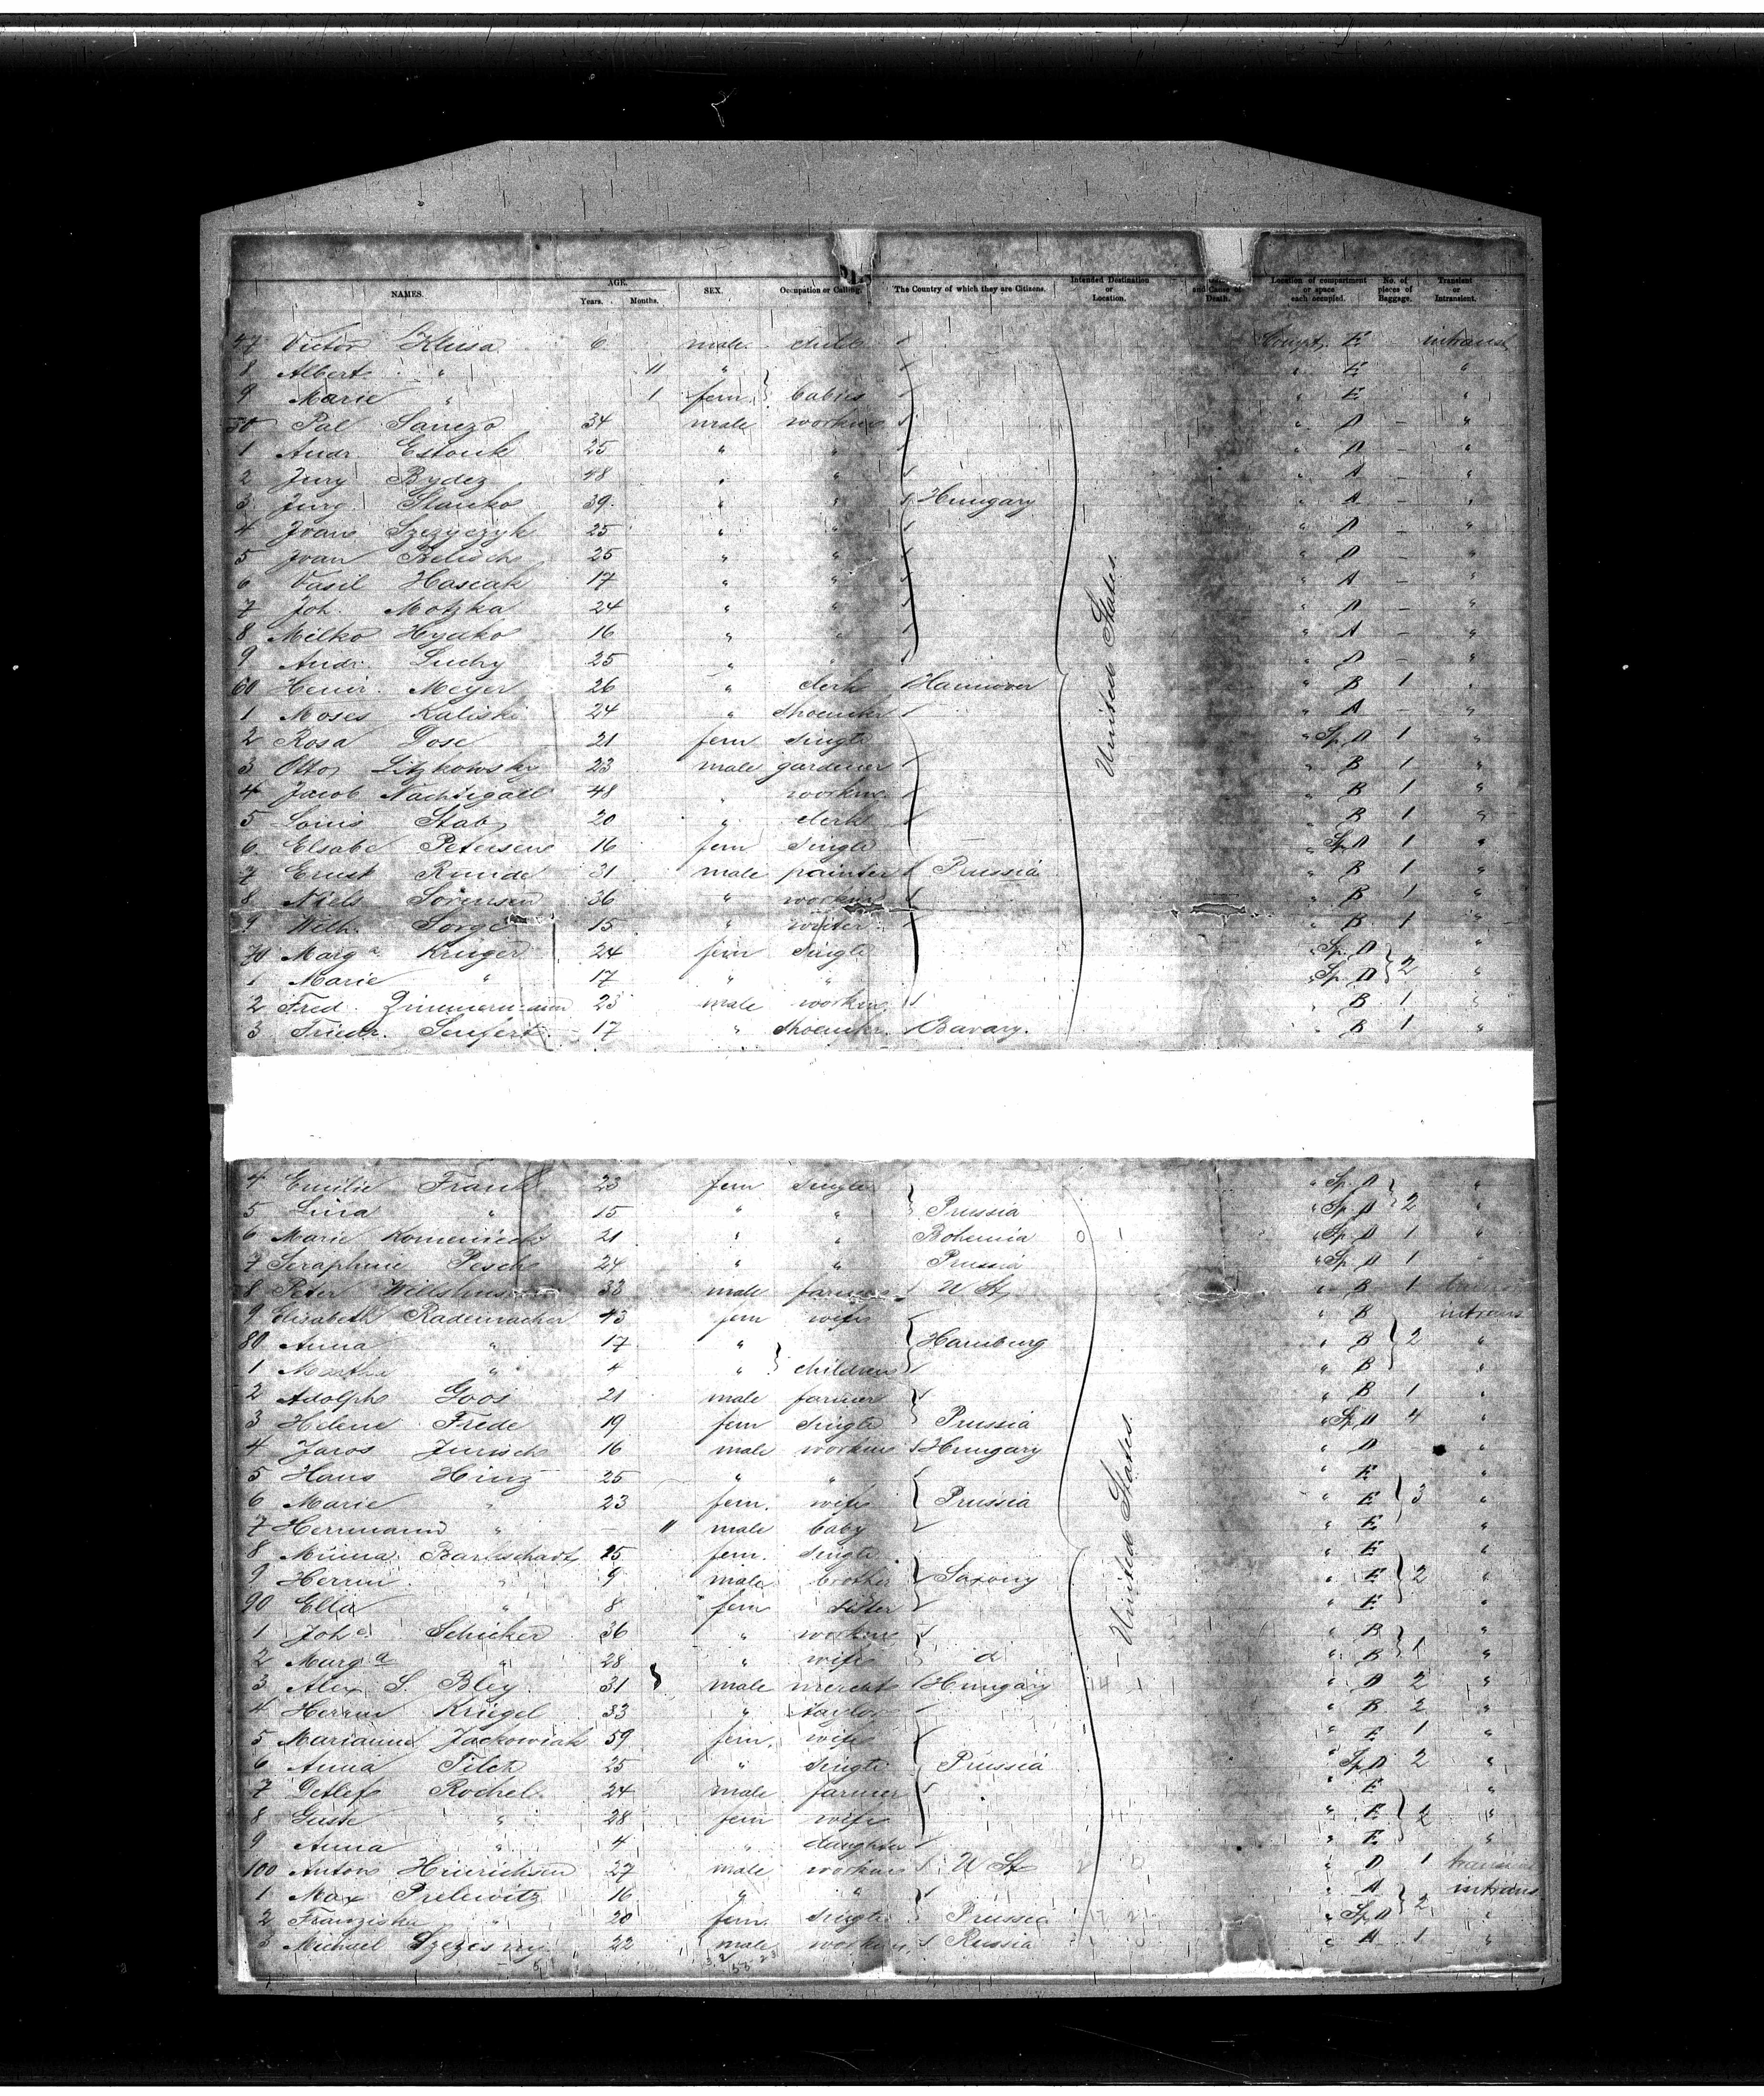 NAMES. AGE. Years. Months. SEX. Occupation or Calling. The Country of which they are Citizens. Intended Destination or Location. and Cause of Death. Location of compartment or space each occupied. No. of pieces of Baggage. Transient or Intransient.
47 Victor Klusa 6 male child Compt. E intranst
8 Albert " 11 " " E "
9 Marie " 1 fem } babies " E "
50 Pal 34 male workm " A – "
1 Andr. Estouk 25 " " " A – "
2 Jury Bydez 48 " " " A – "
3 Jurg. Stanko 39 " " Hungary " A – "
4 Ivan 25 " " " A – "
5 Ivan 25 " " " A – "
6 Vasil Hasiak 17 " " " A – "
7 Joh. Motzka 24 " " " A – "
8 Milko 16 " " " A – "
9 Andr. Suchy 25 " " " A – "
60 Heinr. Meyer 26 " clerk Hannover " B 1 "
1 Moses Kaliski 24 " shoemkr " A – "
2 Rosa Dose 21 fem single " Sp. A 1 "
3 Otto Litzkowsky 23 male gardener " B 1 "
4 Jacob Nachtigall 48 " workm " B 1 "
5 Louis Stab 20 " clerk " B 1 "
6 Elsabe Petersen 16 fem single " Sp. A 1 "
7 Ernst Runde 31 male painter Prussia " B 1 "
8 Niels Sörensen 36 " workm " B 1 "
9 Wilh. Sorge 15 " " B 1 "
70 Marga Krüger 24 fem single " Sp. A } 2 "
1 Marie " 17 " " " Sp. A "
2 Fred. Zimmermann 23 male workm " B 1 "
3 Friedr. Seufert 17 " shoemkr. Bavary. " B 1 "
United States.
4 Emilie Frank 23 fem single " Sp. A "
5 Lina " 15 " " } Prussia " Sp. A } 2 "
6 Marie 21 " " Bohemia " Sp. A 1 "
7 Seraphine Pesch 24 " " Prussia " Sp. A 1 "
8 Peter 33 male farmer U St. " B 1
9 Elisabeth Rademacher 43 fem wife " B intrans
80 Anna " 17 " { Hamburg " B } 2 "
1 Martha " 4 " } children " B "
2 Adolph Goos 21 male farmer " B 1 "
3 Helene Frede 19 fem single } Prussia " Sp. A 4 "
4 Janos Jurisch 16 male workm Hungary " A "
5 Hans Hinz 25 " " " E "
6 Marie " 23 fem. wife { Prussia " E } 3 "
7 Herrmann " – 11 male baby " E "
8 Minna 25 fem. single " E "
9 Herrm " 9 male brother { Saxony " E } 2 "
90 Ella " 8 fem sister " E "
1 Joh. Schicker 36 " workm " B "
2 Marga " 28 " wife } d " B } 1 "
3 Alex S. Bley 31 male mercht Hungary " A 2 "
4 Herrm Kriegel 33 " taylor " B 2 "
5 Marianne Jackowiak 59 fem. wife " E 1 "
6 Anna Tilch 25 " single Prussia " Sp. A 2 "
7 Detlef Rochel 24 male farmer " E "
8 Guste " 28 fem wife " E } 2 "
9 Anna " 4 " daughter " E "
100 Anton Hinrichsen 27 male workm U St " A 1
1 Max Prelewitz 16 " " " A intrans
2 Franziska " 20 fem. single } Prussia " Sp. A } 2 "
3 Michael 22 male workm Russia " A 1 "
United States.